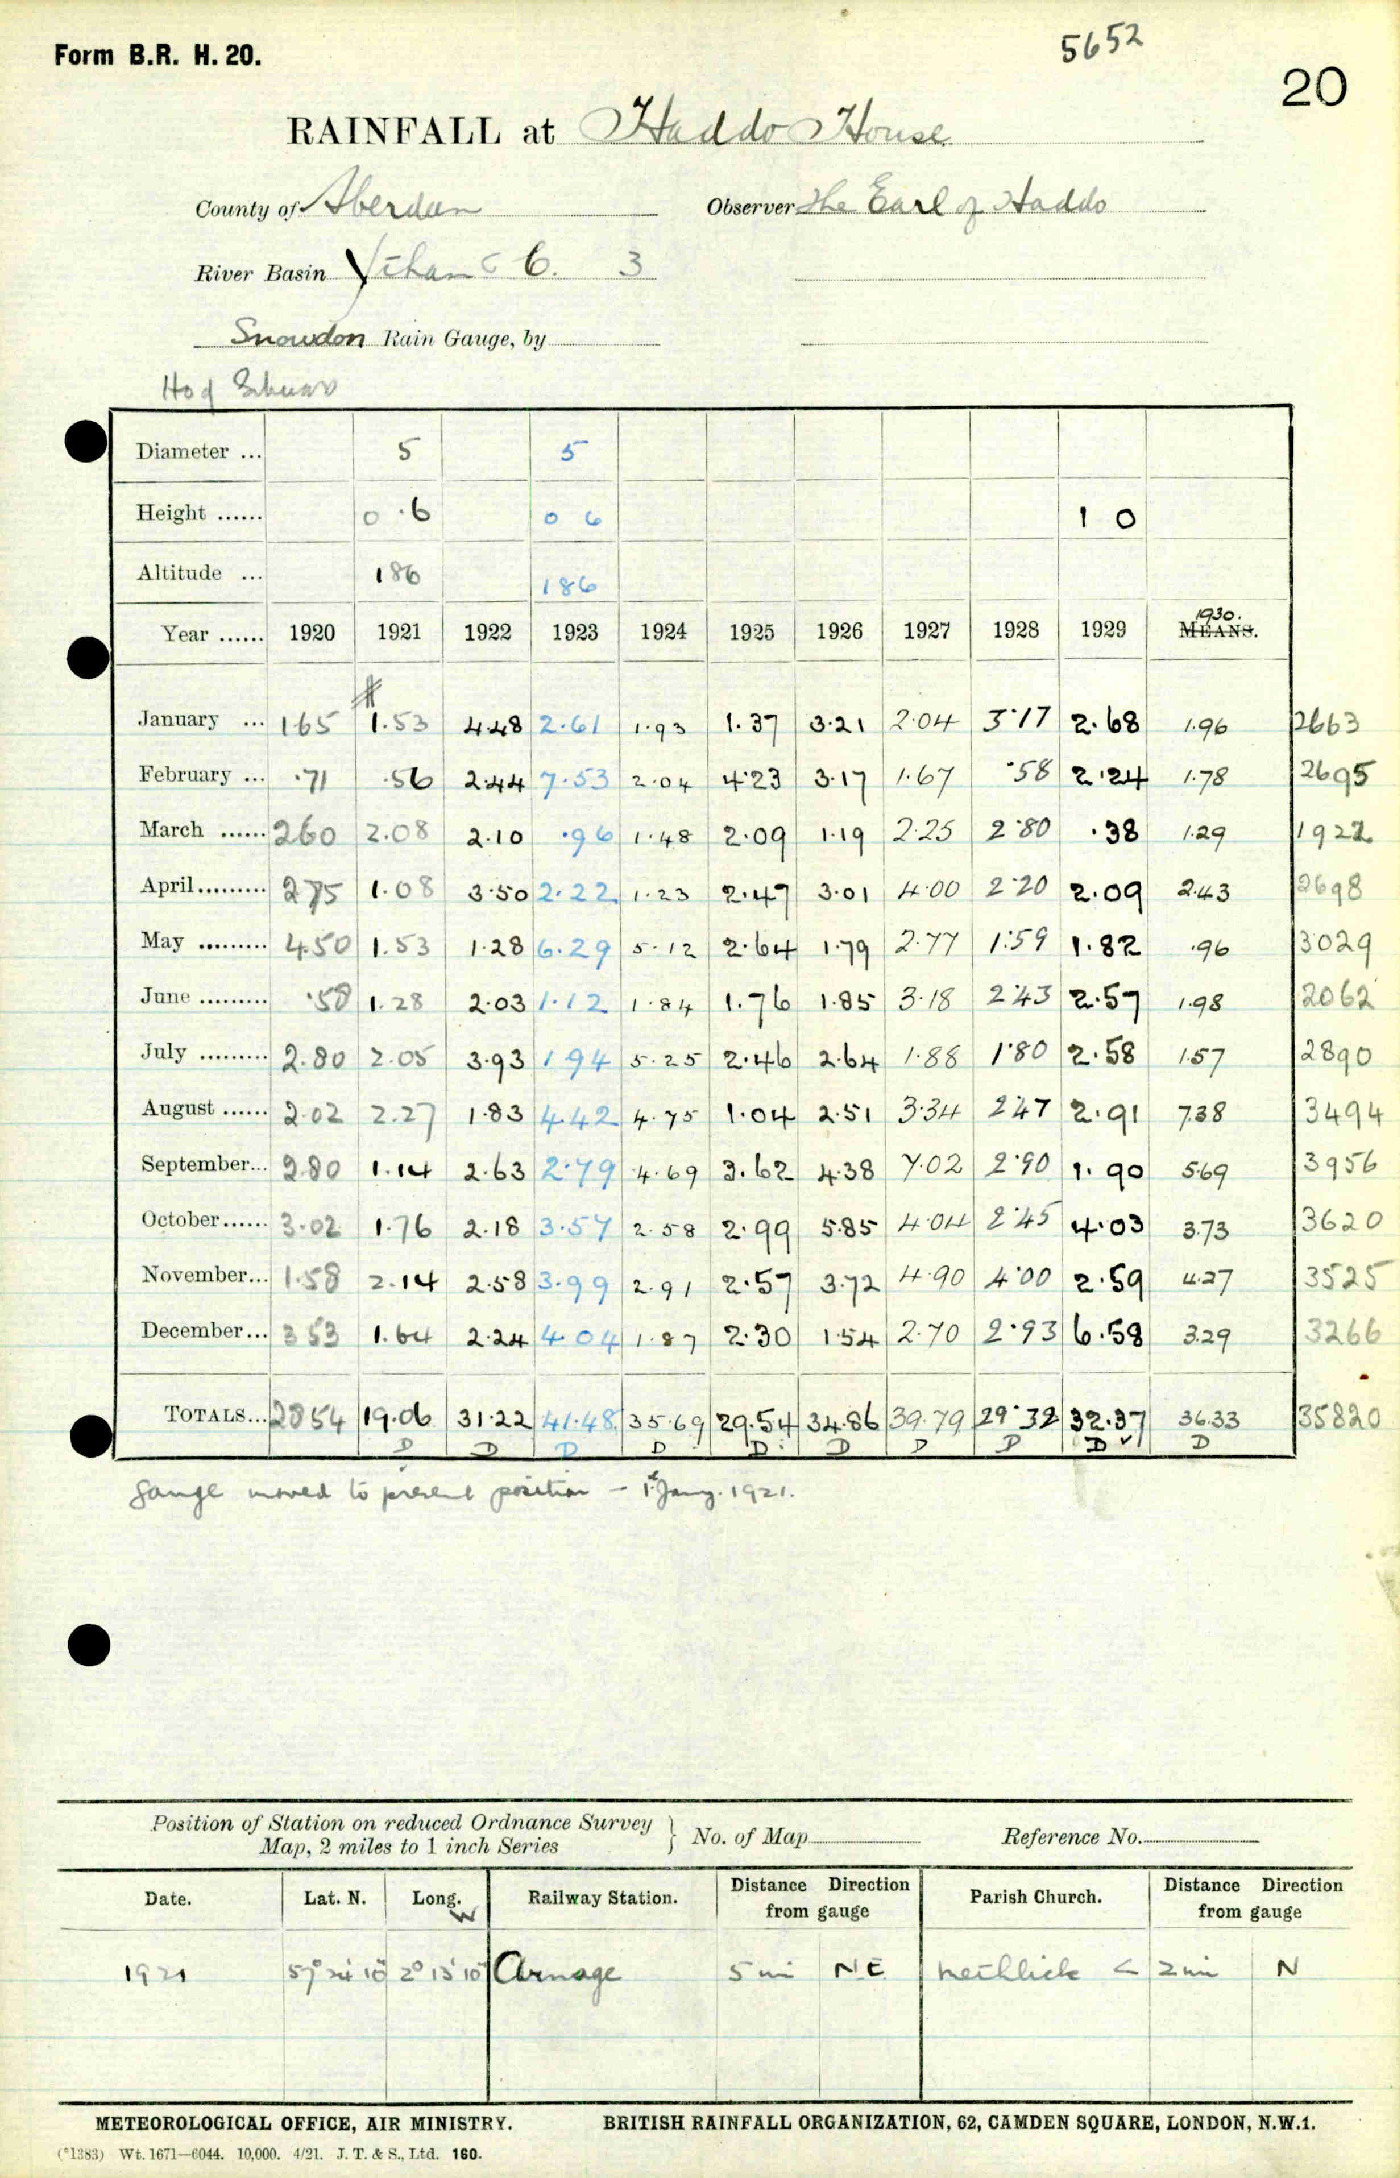 Form B.R. H. 20.
5652
20
RAINFALL at Haddo House
County of Aberdeen Observer The Earl of Haddo
River Basin Ythan C 6. 3
Snowdon Rain Gauge, by
Diameter ... 5 5
Height ...... 0 .6 0 6 1 0
Altitude ... 186 186
1930.
Year ...... 1920 1921 1922 1923 1924 1925 1926 1927 1928 1929 MEANS.
January ... 1.65 1.53 4.48 2.61 1.93 1.37 3.21 2.04 3.17 2.68 1.96 2663
February ... .71 .56 2.44 7.53 2.04 4.23 3.17 1.67 .58 2.24 1.78 2695
March ...... 2.60 2.08 2.10 .96 1.48 2.09 1.19 2.25 2.80 .38 1.29 1922
April......... 2.75 1.08 3.50 2.22 1.23 2.47 3.01 4.00 2.20 2.09 2.43 2698
May ......... 4.50 1.53 1.28 6.29 5.12 2.64 1.79 2.77 1.59 1.82 .96 3029
June ......... .58 1.28 2.03 1.12 1.84 1.76 1.85 3.18 2.43 2.57 1.98 2062
July ......... 2.80 2.05 3.93 1.94 5.25 2.46 2.64 1.88 1.80 2.58 1.57 2890
August ...... 2.02 2.27 1.83 4.42 4.75 1.04 2.51 3.34 2.47 2.91 7.38 3494
September... 2.80 1.14 2.63 2.79 4.69 3.62 4.38 7.02 2.90 1.90 5.69 3956
October...... 3.02 1.76 2.18 3.57 2.58 2.99 5.85 4.04 2.45 4.03 3.73 3620
November... 1.58 2.14 2.58 3.99 2.91 2.57 3.72 4.90 4.00 2.59 4.27 3525
December... 3.53 1.64 2.24 4.04 1.87 2.30 1.54 2.70 2.93 6.58 3.29 3266
TOTALS... 28.54 19.06 31.22 41.48 35.69 29.54 34.86 39.79 29.32 32.37 36.33 35820
D D D D D D D D D ✓ D
Gauge moved to present position – 1st Jany. 1921.
Position of Station on reduced Ordnance Survey
Map, 2 miles to 1 inch Series } No. of Map Reference No.
Date. Lat. N. Long. W Railway Station. Distance Direction from gauge Parish Church. Distance Direction from gauge
1921 57° 24' 10" 2° 13' 10" Arnage 5 mi NE Methlick < 2 mi N
METEOROLOGICAL OFFICE, AIR MINISTRY. BRITISH RAINFALL ORGANIZATION, 62, CAMDEN SQUARE, LONDON, N.W.1.
(*1383) Wt. 1671—6044. 10,000. 4/21. J. T. & S., Ltd. 160.